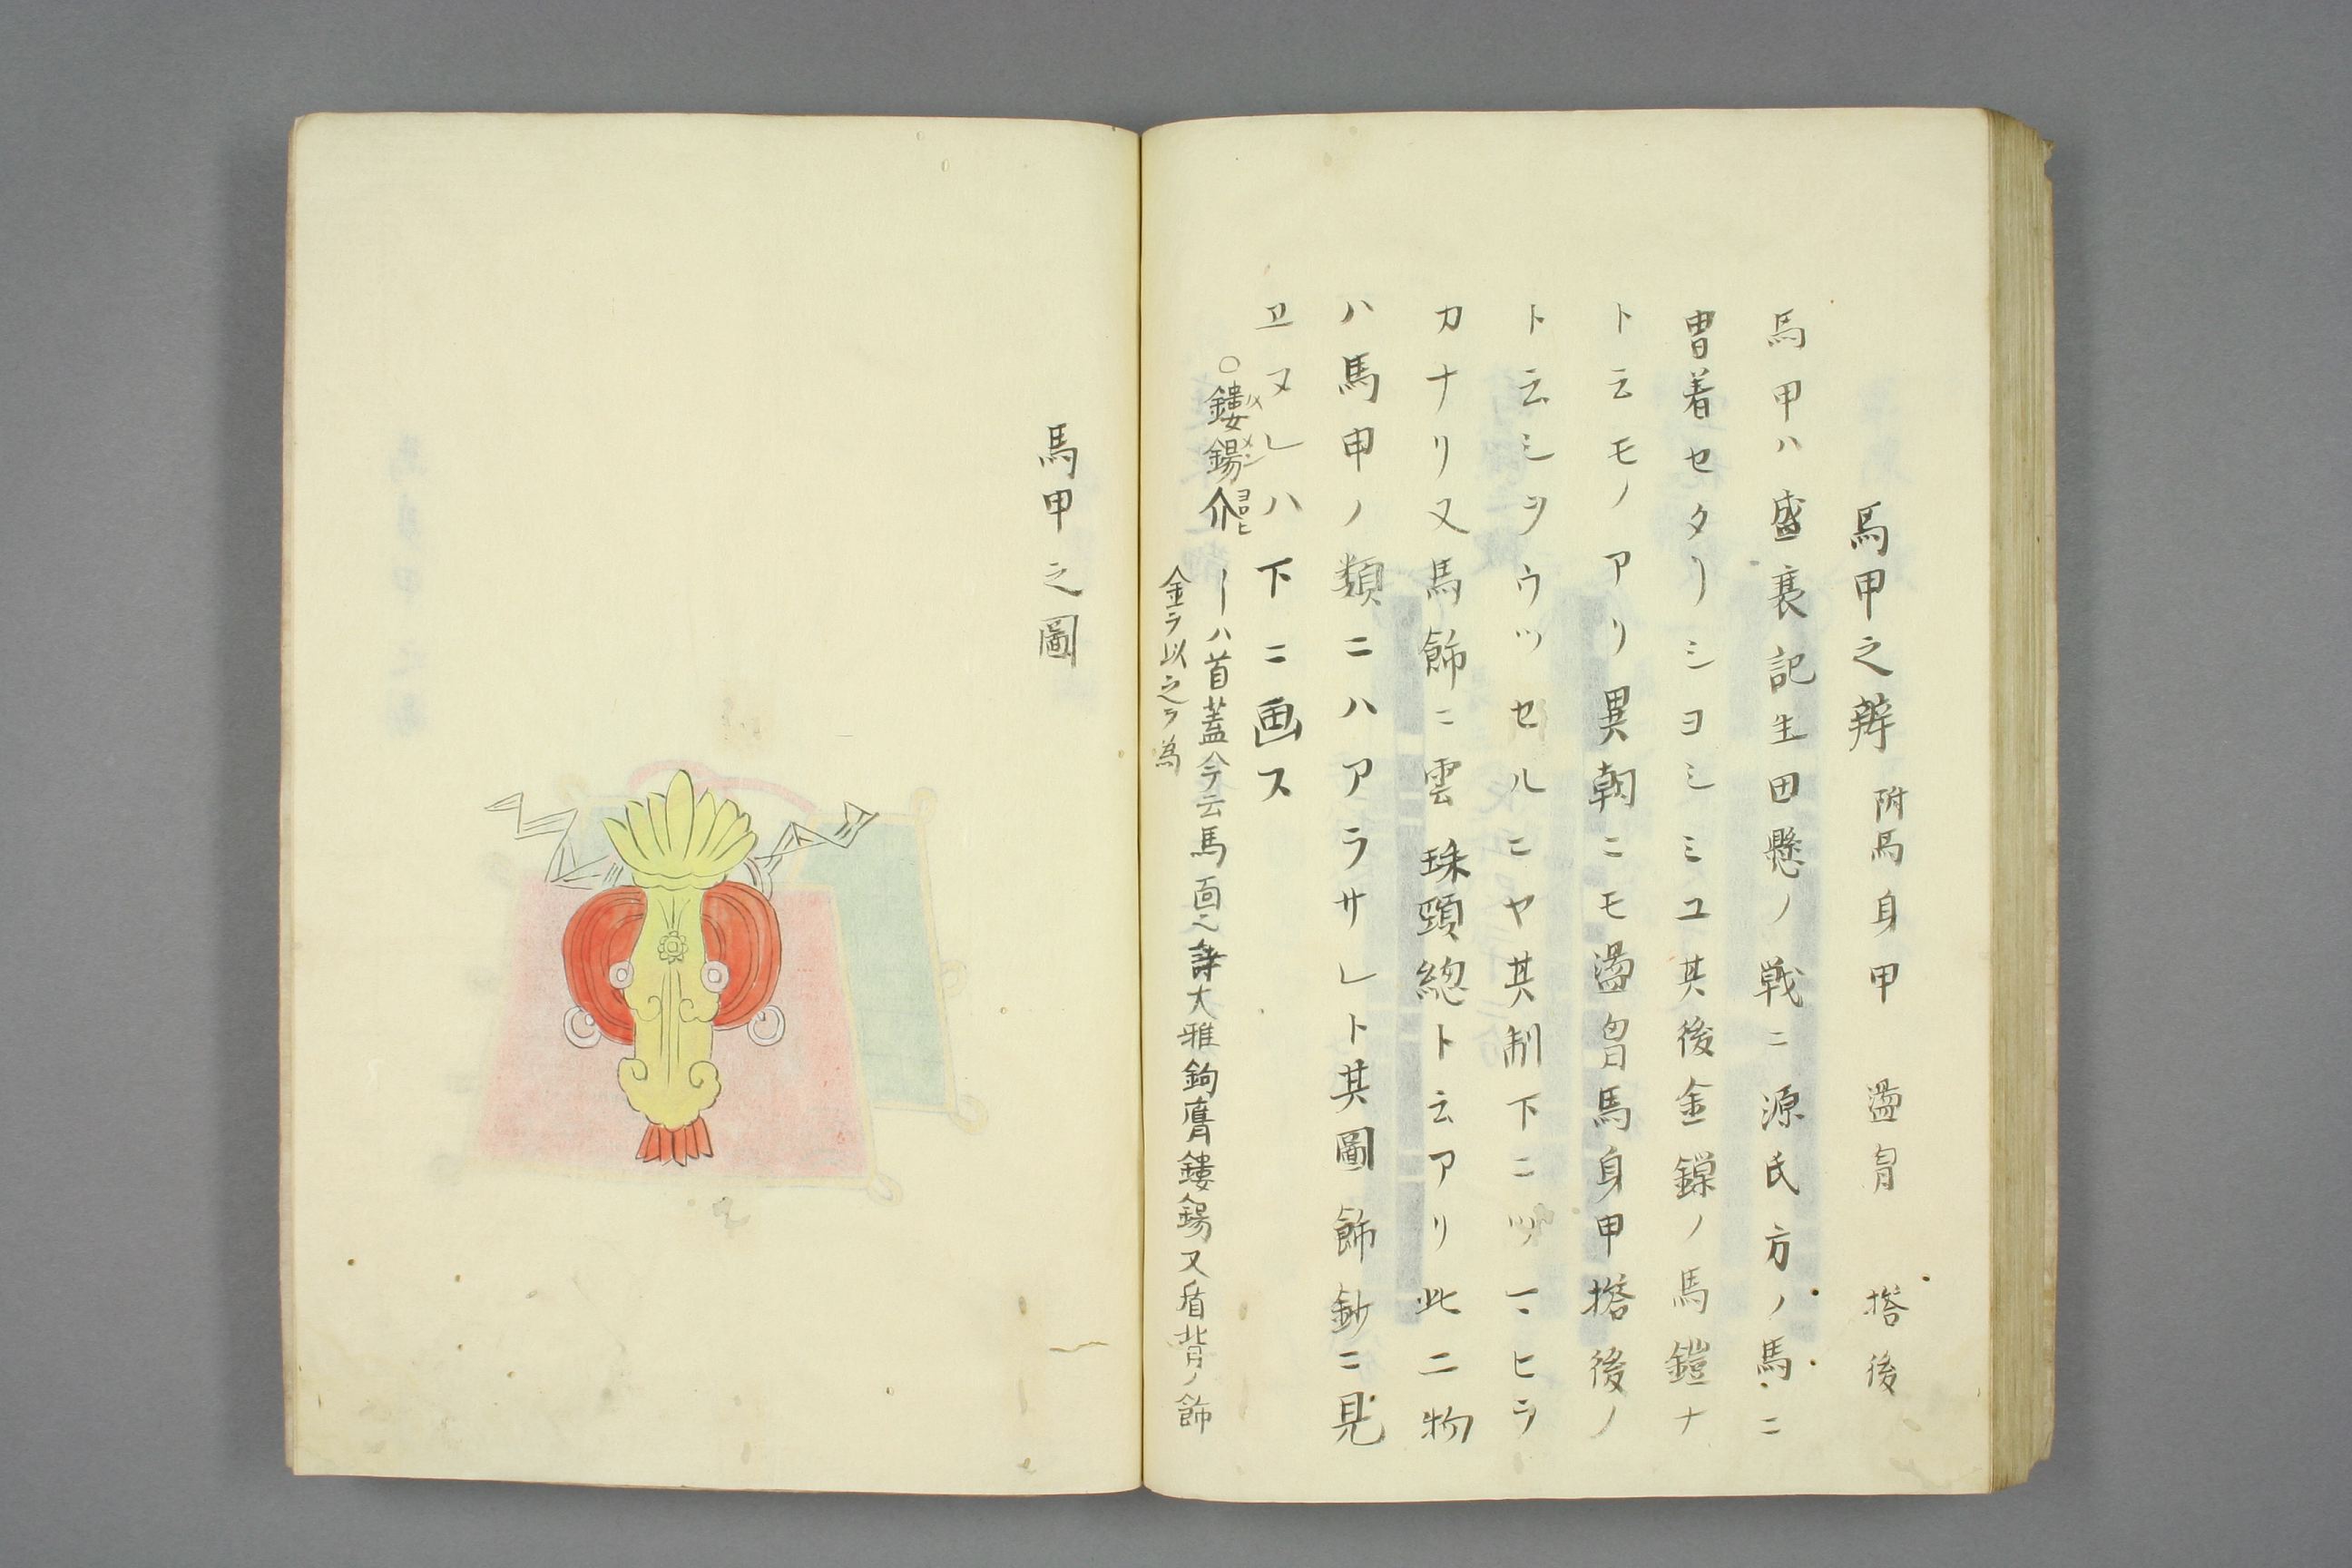 馬甲之辨 附馬身甲 盪胷 搭後
馬甲ハ盛衰記生田懸ノ戦ニ源氏方ノ馬ニ
冑着セタリシヨシミユ其後金鏁ノ馬鎧ナ
ト云モノアリ異朝ニモ盪胷馬身甲搭後ノ
ト云シヲウツセルニヤ其制下ニツマヒラ
カナリ又馬飾ニ雲珠頸総ト云アリ此二物
ハ馬甲ノ類ニハアラサレト其圖飾鈔ニ見
ヱヌレハ下ニ画ス
○鏤鍚介ヨロヒ
ーハ首蓋今云馬面也詩大雅鉤膺鏤鍚又盾背ノ飾
金ヲ以之ヲ為
馬甲之圖